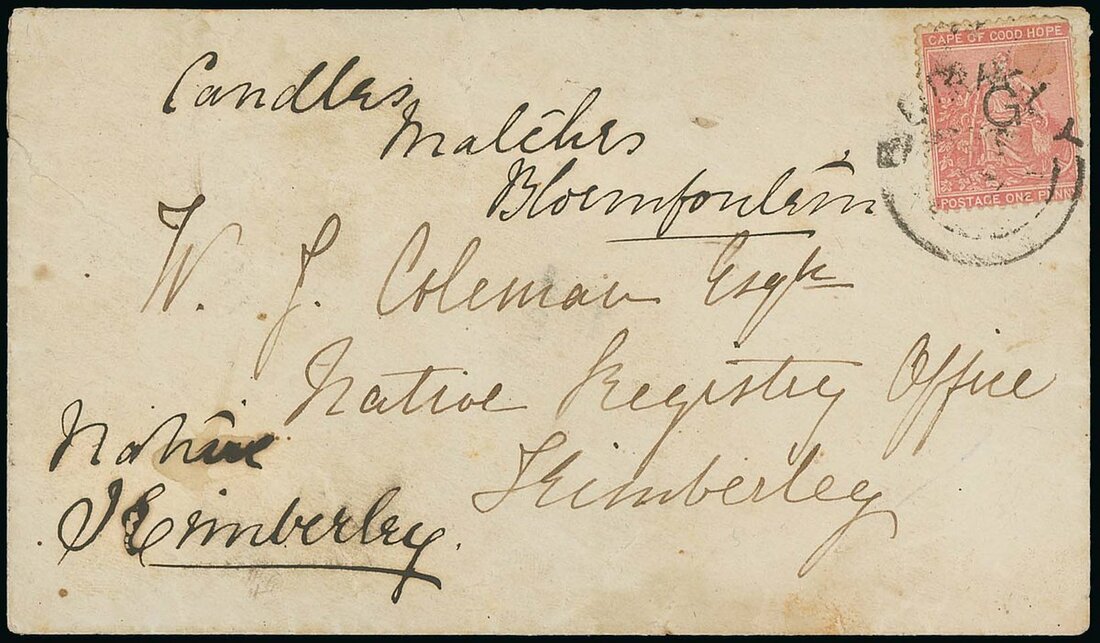 CAPE OF GOOD HOPE
G
POSTAGE ONE PENNY
Candles
Matches
Bloemfontein
W. J. Coleman Esqre
Native Registry Office
Kimberley
Native
Kimberley.